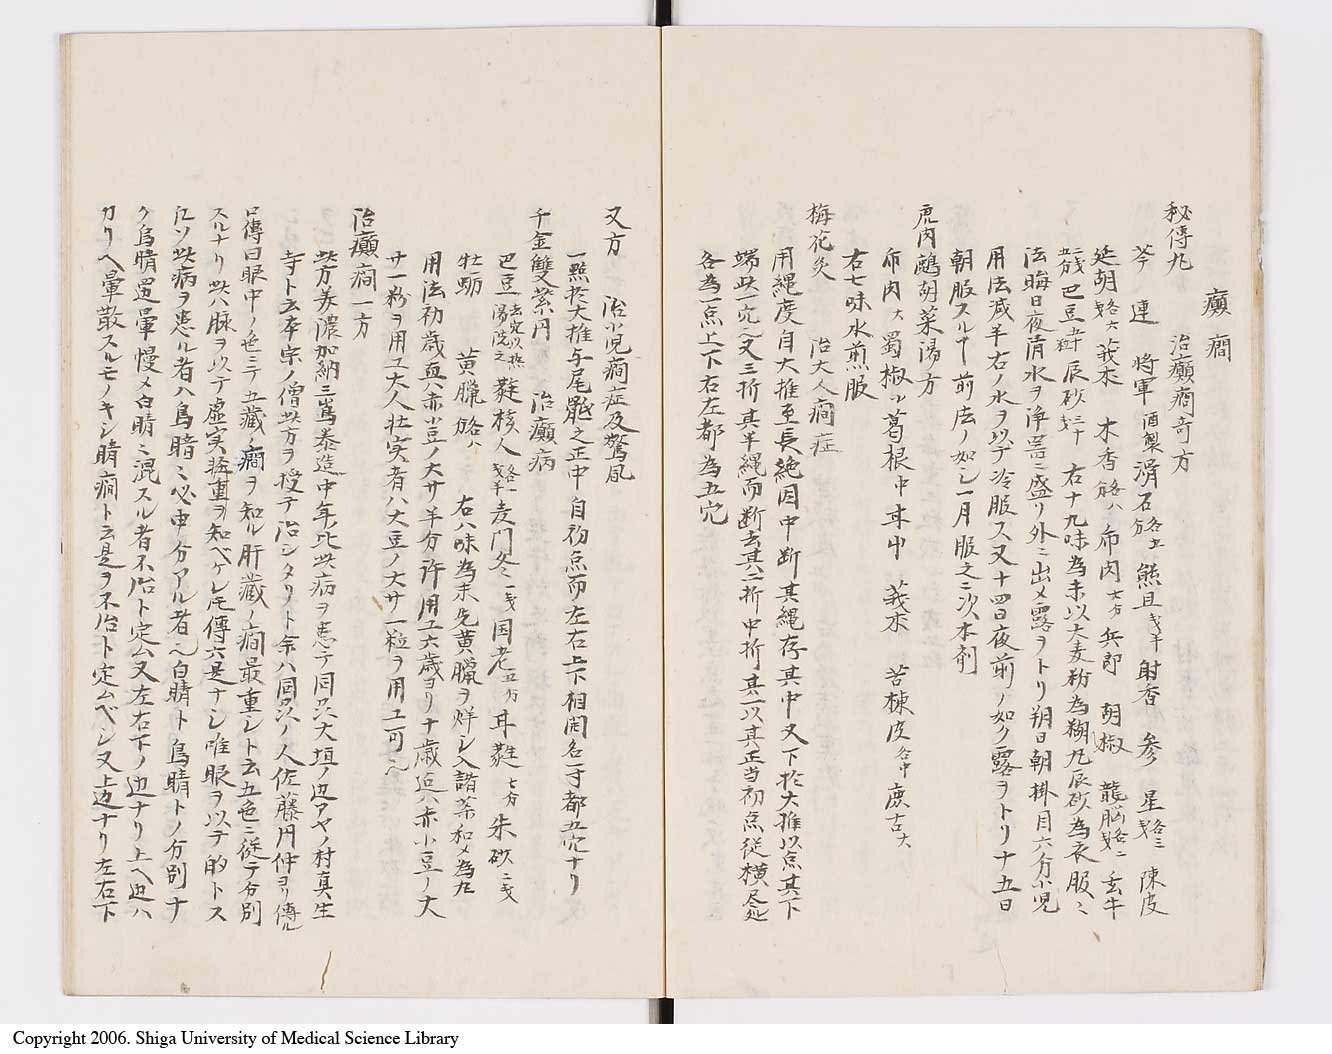 癲癇
秘傳丸 治癲癇奇方
芩 連 將軍酒製 滑石 熊旦 射香 参 星 陳皮
延胡 莪朮 木香 布肉 兵郎 胡椒 龍脳 玄牛
巴豆 辰砂 右十九味為末以大麦粉為糊丸辰砂為衣服ニ
法晦日夜清水ヲ浄器ニ盛リ外ニ出メ露ヲトリ朔日朝掛目六分小児
用法减半右ノ水ヲ以テ冷服ス又十四日夜前ノ如ク露ヲトリ十五日
朝服スルヿ前法ノ如シ一月服之二次本剤
鹿肉鷓胡菜湯ノ方
布肉大蜀椒小葛根中朮中 莪朮 苦楝皮各中 鹿古大
右七味水煎服
梅花灸 治大人癇症
用縄度自大推至長絶因中断其縄存其中又下於大推以点其下
端此一穴又三折其半縄而断去其二折中折其一以其正当初点従横尽処
各為一点上下右左都為五穴
又方 治小児癇症及驚風
一點於大推与尾骶之正中自初点而左右上下相開各一寸都五穴ナリ
千金雙紫円 治癲病
巴豆 蕤核人 麦門冬 国老五分 甘遂七分 朱砂二戔
牡蛎 黄臘 右八味為末先黄臘ヲ烊シ入諸薬和メ為丸
用法初歳与赤小豆ノ大サ半分許用工六歳ヨリ十歳迄ハ赤小豆ノ大
サ一粉ヲ用工大人壮実者ハ大豆ノ大サ一粒ヲ用工可ヘ
治癲癇一方
此方美濃加納三嶌泰造中年比此病ヲ患テ同只大垣ノ辺アヤノ村真生
寺ト云本宗ノ僧此方ヲ授テ治シタリト余ハ同只ノ人佐藤丹仲ヨリ傳ル
口傳曰眼中ノ色ニテ五藏ノ癇ヲ知ル肝藏ノ癇最重シト云五色ニ従テ分別
スルナリ此ハ脉ヲ以テ虚実軽重ヲ知ベケレ𪜈傳六是ナシ唯眼ヲ以テ的トス
凡ソ此病ヲ患ル者ハ烏睛ニ必申分アル者ヘ白睛ト烏睛トノ分別ナ
ク烏睛邊暈慢メ白睛ニ混スル者不治ト定ム又左右下ノ辺ナリ上ヘ辺ハ
カリヘ暈散スルモノキシ睛癇ト云是ヲ不治ト定ムベシ又上辺ナリ左右下